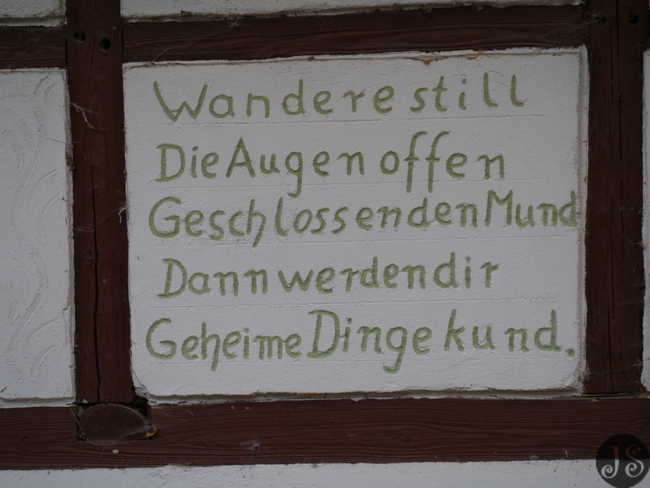 Wandere still
Die Augen offen
Geschlossen den Mund
Dann werden dir
Geheime Dinge kund.
JS